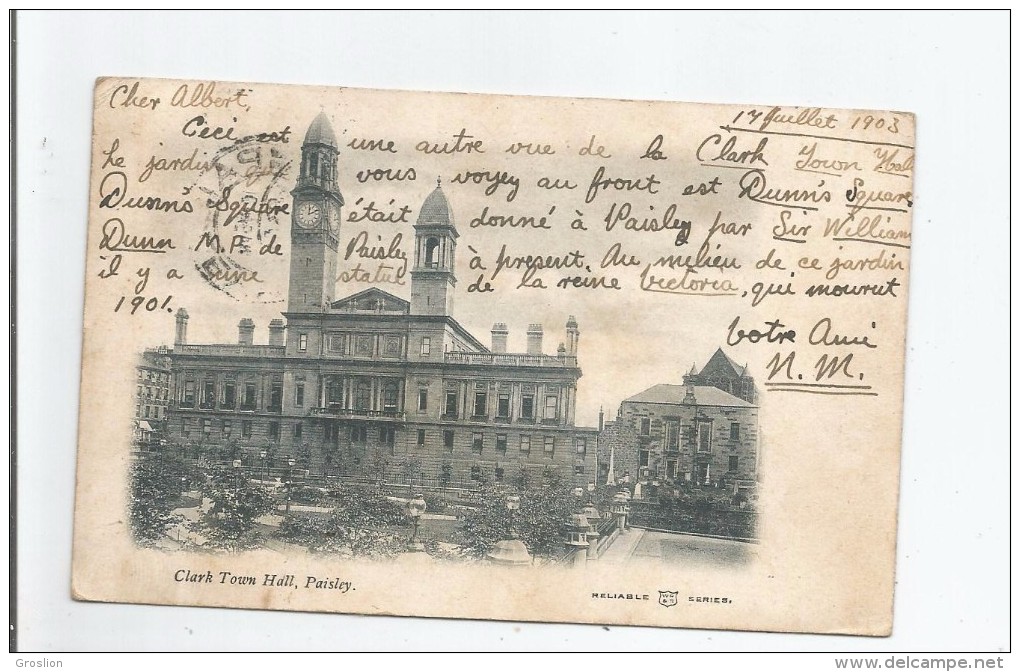 Cher Albert,
17 Juillet 1903
Ceci est une autre vue de la Clark Town Hall
Le jardin que vous voyez au front est Dunn's Square
Dunn's Square était donné à Paisley par Sir William
Dunn M.P. de Paisley à present. Au milieu de ce jardin
il y a une statue de la reine Victoria, qui mourut
1901.
Votre Ami
N. M.
Clark Town Hall, Paisley.
RELIABLE WR & S SERIES.
©Groslion
www.delcampe.net